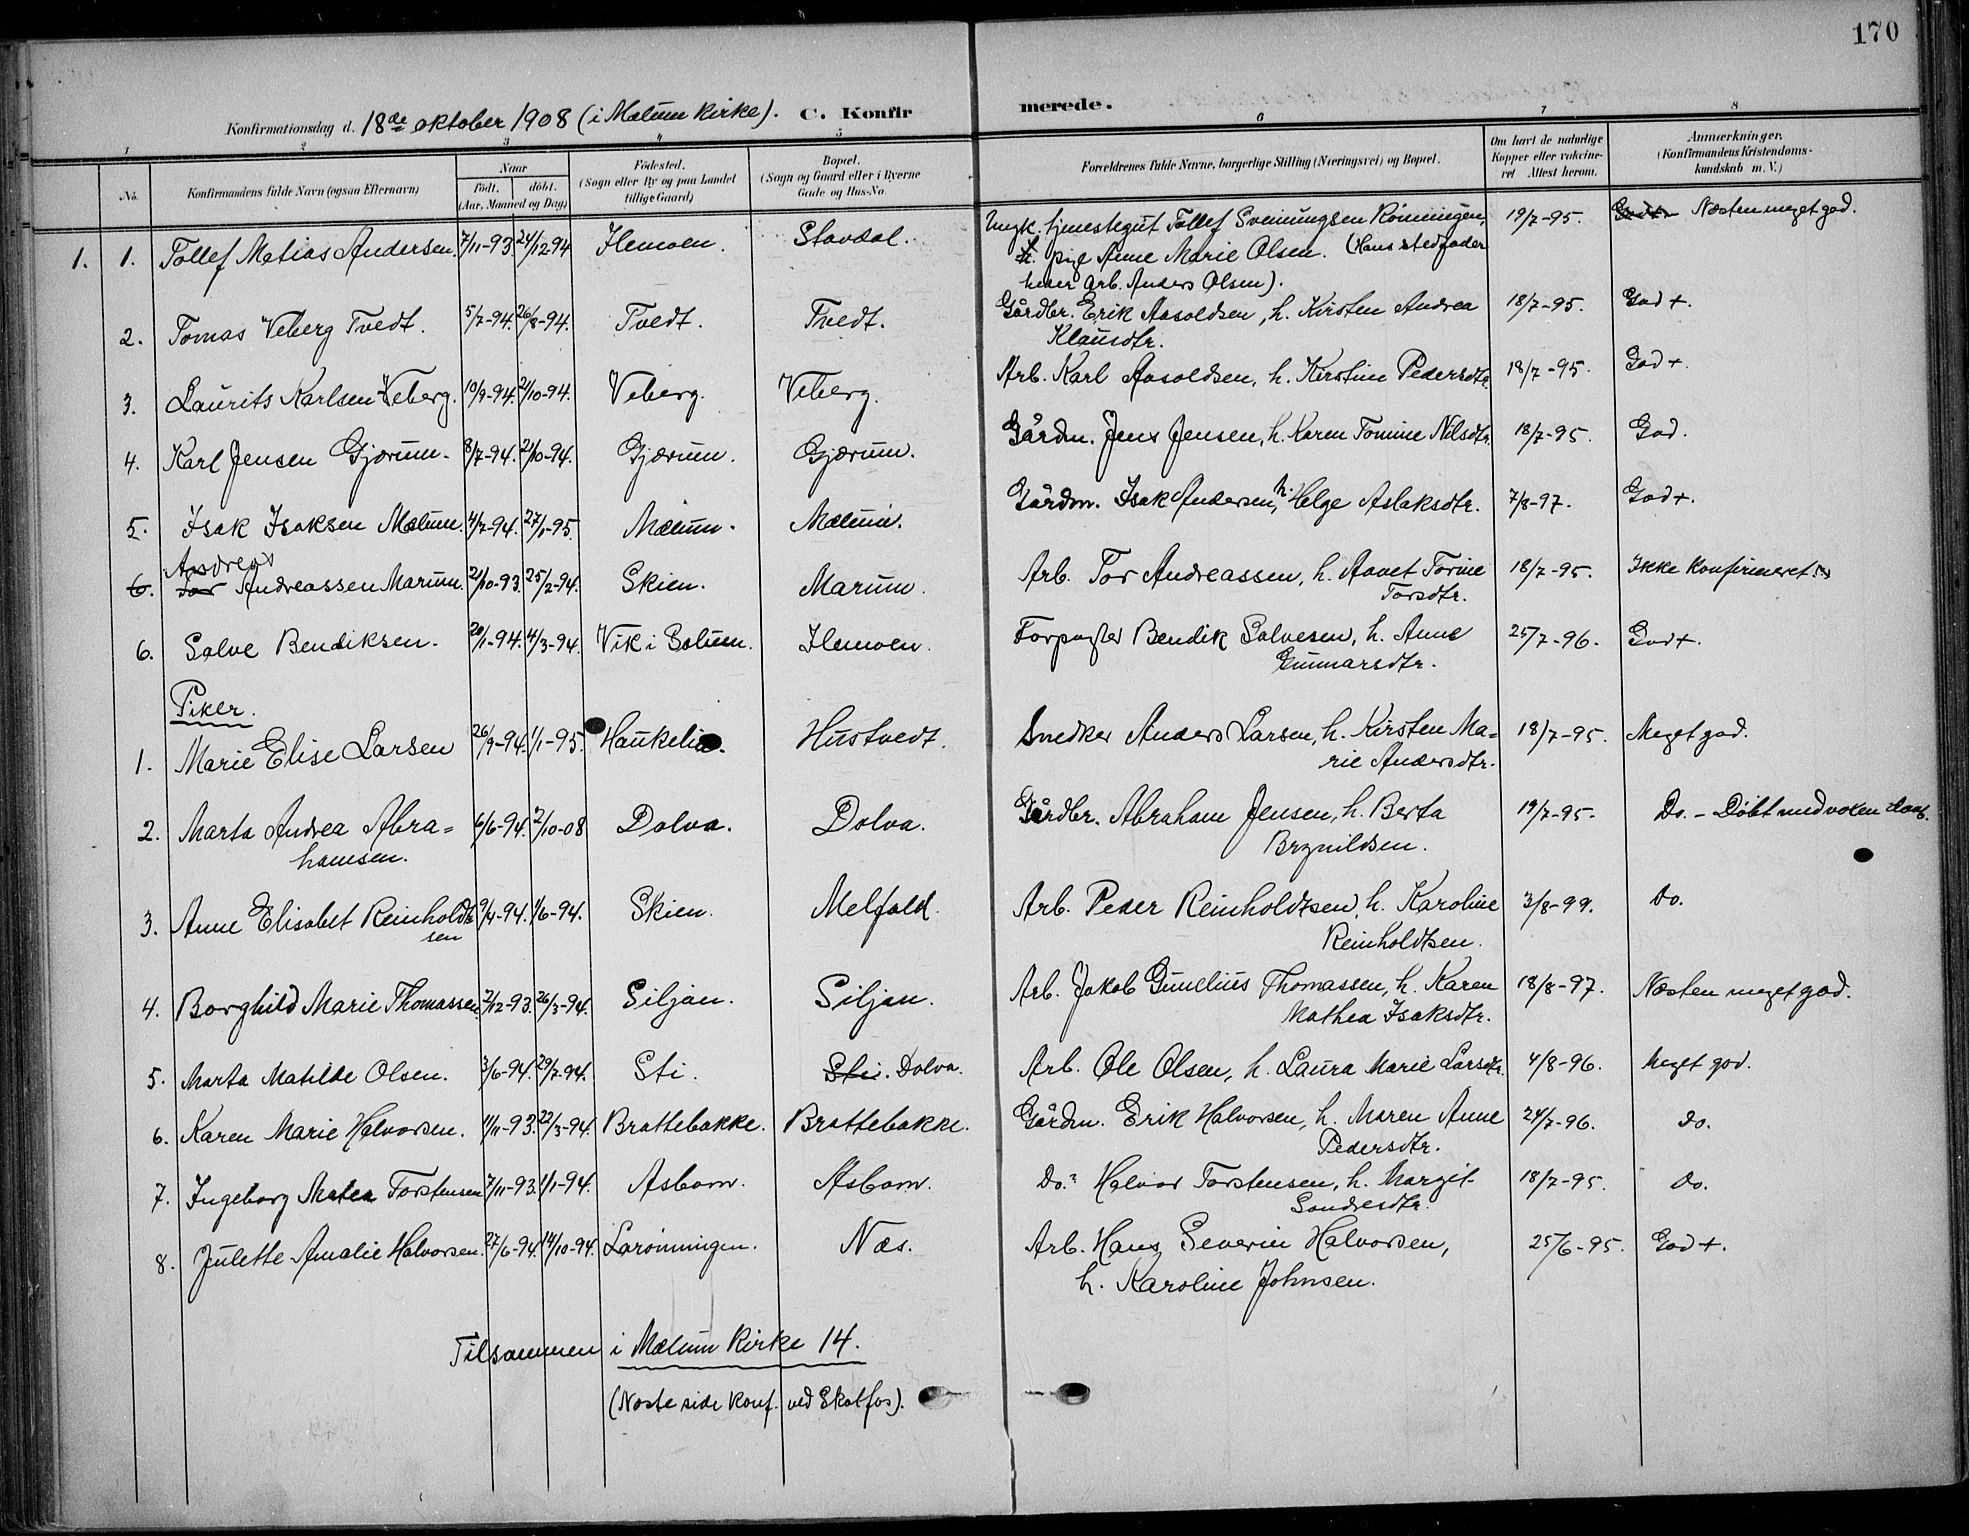 170
Konfirmationsdag d. 18de oktober 1908 (i Mælum kirke). C. Konfirmerede.
1 2 3 4 5 6 7 8
No. Konfirmandens fulde Navn (ogsaa Efternavn) Naar födt. döbt. (Aar, Maaned og Dag) Födested. (Sogn eller By og paa Landet tillige Gaard) Bopæl. (Sogn og Gaard eller i Byerne Gade og Hus-No. Forældrenes fulde Navne, borgerlige Stilling (Næringsvei) og Bopæl. Om havt de naturlige Kopper eller vakcineret Attest herom. Anmærkninger. (Konfirmandens Kristendomskundskab m. V.)
1. 1. Tollef Matias Andersen. 7/11-93. 24/12-94 Ilemoen. Stavdal. Ungk. tjenestegut Tollef Sveinungsen Rønningen, 19/7-95. God+. Næsten meget god.
pige Anne Marie Olsen. (Hans stedfader
heder arb. Anders Olsen).
2. Tomas Veberg Tvedt. 5/7-94. 26/8-94. Tvedt. Tvedt. Gårdbr. Erik Aasoldsen, h. Kirsten Andrea 18/7-95. God+.
Klausdtr.
3. Laurits Karlsen Veberg. 10/9-94. 21/10-94. Veberg. Veberg. Arb. Karl Aasoldsen, h. Kirstine Pedersdtr. 18/7-95. God+.
4. Karl Jensen Gjærum. 8/7-94. 21/10-94. Gjærum. Gjærum. Gårdm. Jens Jensen, h. Karen Tomine Nilsdtr. 18/7-95. God.
5. Isak Isaksen Mælum. 4/7-94. 27/1-95. Mælum. Mælum. Gårdm. Isak Andersen, h. Helge Aslaksdtr. 7/8-97. God+.
Andreas
6. Tor Andreassen Marum. 21/10-93. 25/2-94. Skien. Marum. Arb. Tor Andreassen, h. Aanet Torine 18/7-95. Ikke konfirmeret.
Torsdtr.
6. Salve Bendiksen. 20/1-94. 4/3-94. Vik i Solum. Ilemoen. Forpagter Bendik Salvesen, h. Anne 25/7-96. God+.
Gunnarsdtr.
Piker.
1. Marie Elise Larsen 26/9-94. 1/1-95. Haukelia. Hustvedt. Snedker Anders Larsen, h. Kirsten Ma= 18/7-95. Meget god.
rie Andersdtr.
2. Marta Andrea Abra= 6/6-94. 2/10-08 Dolva. Dolva. Gårdbr. Abraham Jensen, h. Berta 19/7-95. Do. - Døbt med voksen daab.
hamsen. Brynildsen.
3. Anne Elisabet Reinholdt= 9/4-94. 1/6-94. Skien. Melfald. Arb. Peder Reinholdtsen, h. Karoline 3/8-99. Do.
sen Reinholdtsen.
4. Borghild Marie Thomassen. 2/12-93. 26/3-94. Siljan. Siljan. Arb. Jakob Gunelius Thomassen, h. Karen 18/8-97. Næsten meget god.
Mathea Isaksdtr.
5. Marta Matilde Olsen. 3/6-94. 29/7-94. Sti. Sti. Dolva. Arb. Ole Olsen, h. Laura Marie Larsdtr. 4/8-96. Meget god.
6. Karen Marie Halvorsen. 11/11-93. 22/3-94. Brattebakke. Brattebakke. Gårdm. Erik Halvorsen, h. Maren Anne 24/7-96. Do.
Pedersdtr.
7. Ingeborg Matea Torstensen 7/11-93. 1/1-94. Asbom. Asbom. Do. Halvor Torstensen, h. Margit 18/7-95. Do.
Sondresdtr.
8. Julette Amalie Halvorsen. 27/6-94. 14/10-94. Larønningen. Næs. Arb. Hans Severin Halvorsen, 25/6-95. God+.
h. Karoline Johnsen.
Tilsammen i Mælum kirke 14.
(Næste side konf. ved Skotfos).